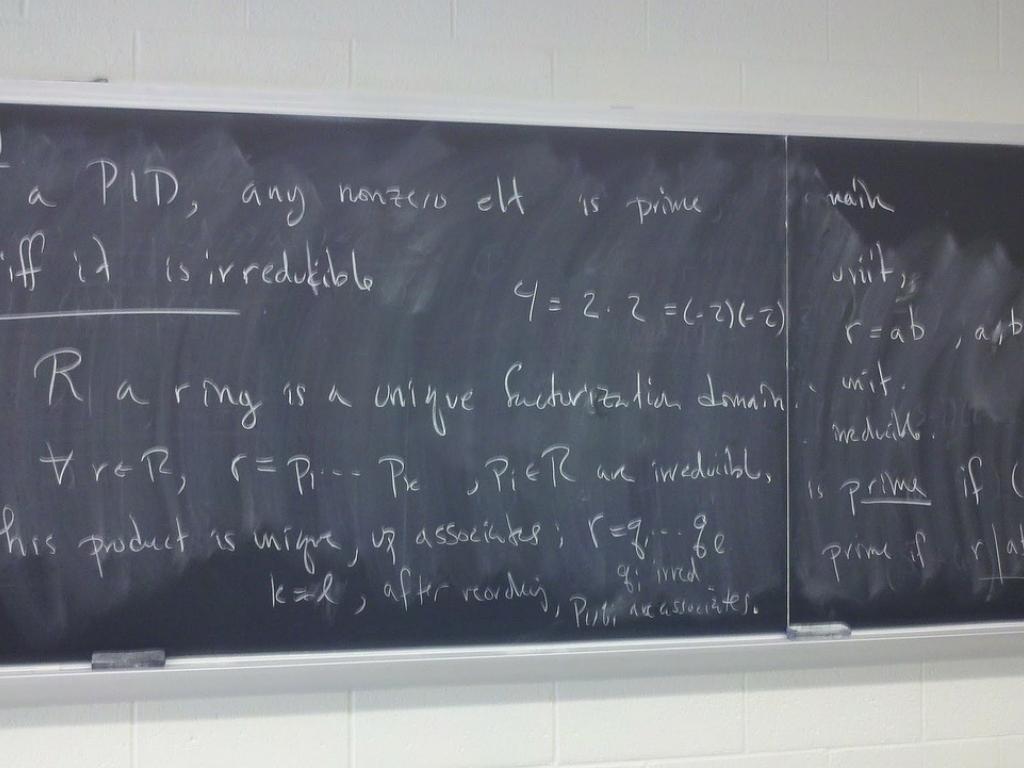 a PID, any nonzero elt is prime
iff it is irreducible
4 = 2 · 2 = (-2)(-2)
R a ring is a unique factorization domain
∀ r ∈ R, r = p₁ ... pₖ , pᵢ ∈ R are irreducible,
this product is unique, up associates; r = q₁ ... qₑ
qᵢ irred
k = l, after reordering, pᵢ, qᵢ are associates.
unit,
r = ab , a, b
unit.
irreducible.
is prime if (
prime if r | ab